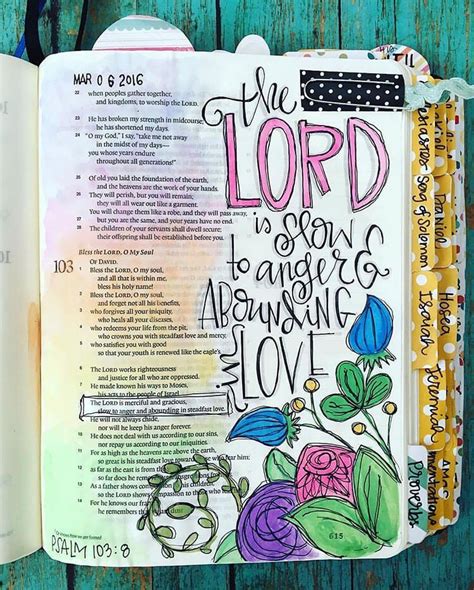 MAR 0 6 2016
22 when peoples gather together,
and kingdoms, to worship the LORD.
23 He has broken my strength in midcourse;
he has shortened my days.
24 "O my God," I say, "take me not away
in the midst of my days—
you whose years endure
throughout all generations!"
25 Of old you laid the foundation of the earth,
and the heavens are the work of your hands.
26 They will perish, but you will remain;
they will all wear out like a garment.
You will change them like a robe, and they will pass away,
27 but you are the same, and your years have no end.
28 The children of your servants shall dwell secure;
their offspring shall be established before you.
Bless the LORD, O My Soul
103 OF DAVID.
1 Bless the LORD, O my soul,
and all that is within me,
bless his holy name!
2 Bless the LORD, O my soul,
and forget not all his benefits,
3 who forgives all your iniquity,
who heals all your diseases,
4 who redeems your life from the pit,
who crowns you with steadfast love and mercy,
5 who satisfies you with good
so that your youth is renewed like the eagle's.
6 The LORD works righteousness
and justice for all who are oppressed.
7 He made known his ways to Moses,
his acts to the people of Israel.
8 The LORD is merciful and gracious,
slow to anger and abounding in steadfast love.
9 He will not always chide,
nor will he keep his anger forever.
10 He does not deal with us according to our sins,
nor repay us according to our iniquities.
11 For as high as the heavens are above the earth,
so great is his steadfast love toward those who fear him;
12 as far as the east is from the
so far does he remove
13 As a father shows compassion
so the LORD shows compassion to those who
14 For he knows our frame
he remembers that dust.
PSALM 103:8
615
the
LORD
is slow
to anger &
ABOUNDING
in LOVE
Song of Solomon
Isaiah
Jeremiah
Proverbs
Daniel
Hosea